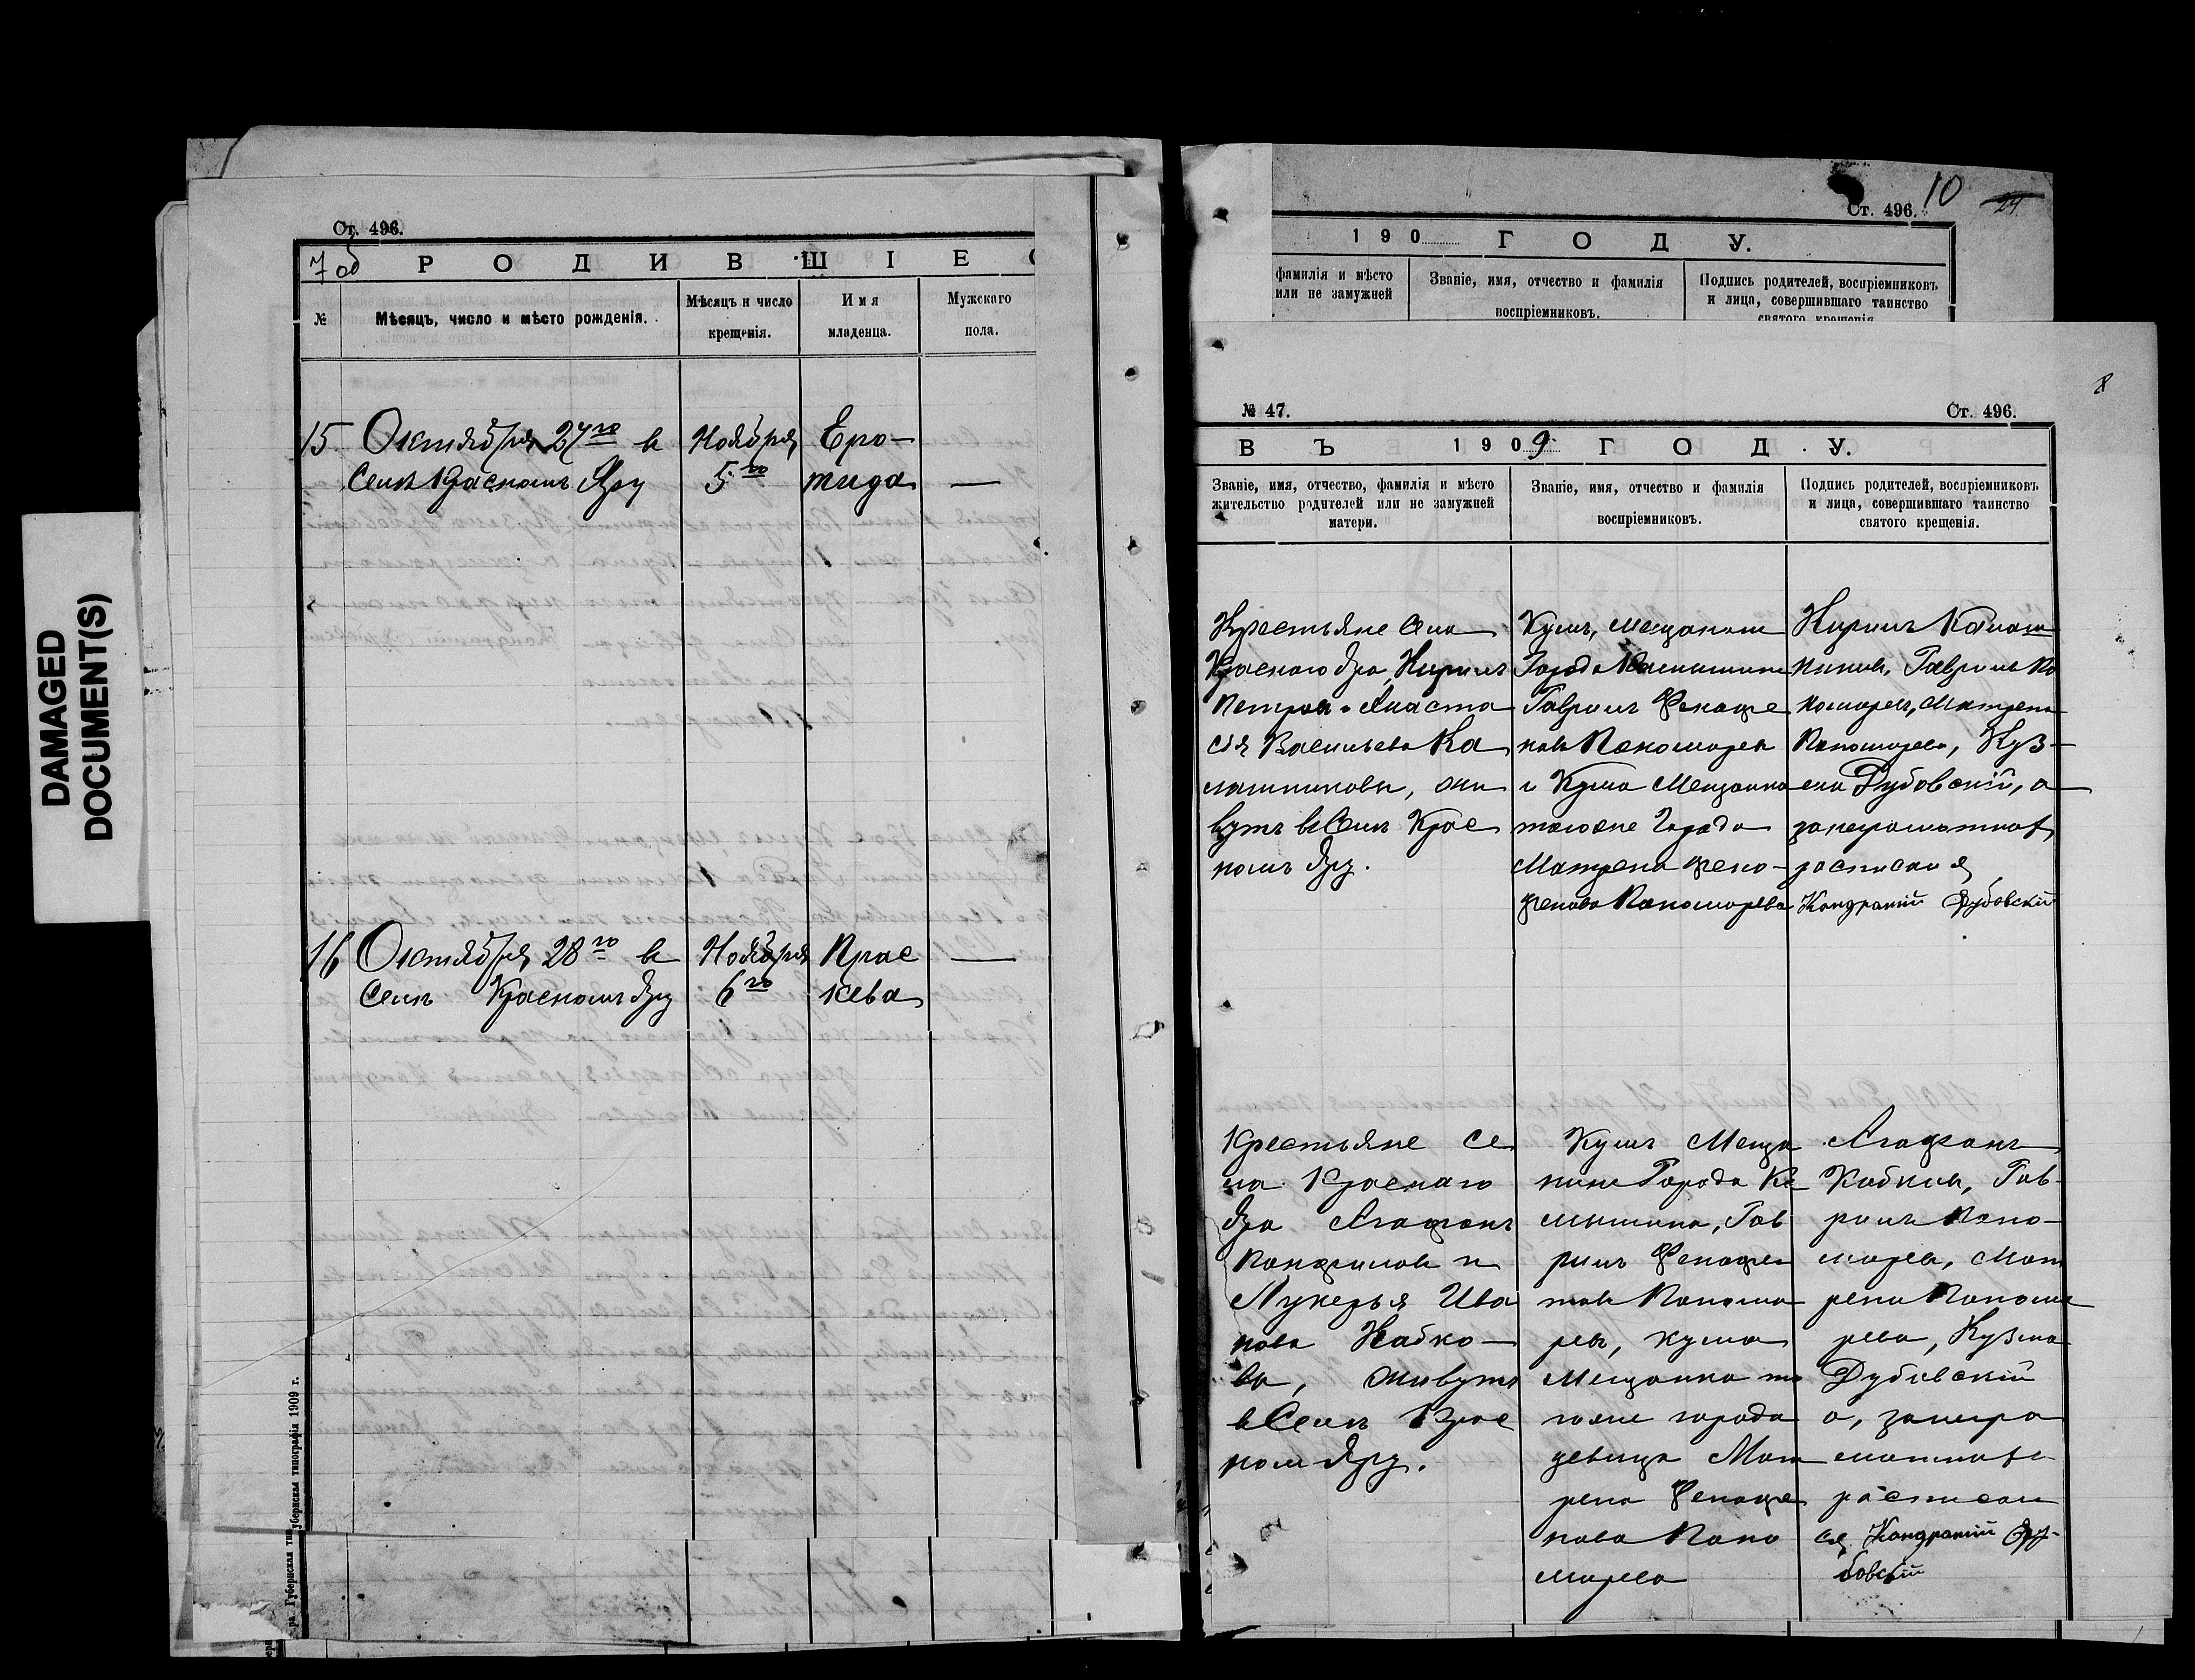 DAMAGED
DOCUMENT(S)
Ст. 496.
7 об
Р О Д И В Ш І Е С
№
Мѣсяцъ, число и мѣсто рожденія.
Мѣсяцъ и число
крещенія.
Имя
младенца.
Мужскаго
пола.
15 Октября 27го в
Селѣ Красномъ Яру
Ноября
5го
Еро-
тида
—
16 Октября 28го в
Селѣ Красномъ Яру
Ноября
6го
Прас
кева
—
убернскья типографія 1909 г.
ра Губернская тип
10
Ст. 496.
24
190 Г О Д У.
фамилія и мѣсто
или не замужней
Званіе, имя, отчество и фамилія
воспріемниковъ.
Подпись родителей, воспріемниковъ
и лица, совершившаго таинство
святого крещенія
8
№ 47.
Ст. 496.
В Ъ 1909 Г О Д У.
Званіе, имя, отчество, фамилія и мѣсто
жительство родителей или не замужней
матери.
Званіе, имя, отчество и фамилія
воспріемниковъ.
Подпись родителей, воспріемниковъ
и лица, совершившаго таинство
святого крещенія.
Крестьяне Села
Краснаго Яра, Кирилъ
Петров. Анаста
сія Васильева Ка
лашниковы, жи
вутъ в Селѣ Крас
номъ Яру.
Кумъ, мещанин
Города Камышина
Гаврилъ Фенафе
новъ Пономорев
и Кума Мещанка
таюже Города
Матрена Фено-
фенова Пономорева
Кирилъ Калаш
никив, Гаврилъ По
номорев, Матрена
Пономорева, Куз-
ма Дубовскій, а
занеграмотнах
росписался
Кондратій Дубовскій
Крестьяне Се
ла Краснаго
Яра Агафонъ
Панфилов и
Лукерья Ива
нова Кабко-
вы, живутъ
в Селѣ Крас
ном Яру.
Кумъ Меща
нине Города Ка
мышина, Гав
рилъ Фенафен
тов Понома
рев, кума
Мещанка то
гоже города
девица Мат
рена Фенафе
нова Поно
морева
Агафонъ
Кабкин, Гав-
рилъ Поно-
морев, Мат
рена Понома
рева, Кузма
Дубовскій
а, занегра
мотнахъ
росписал
ся Кондратій Ду-
бовскій